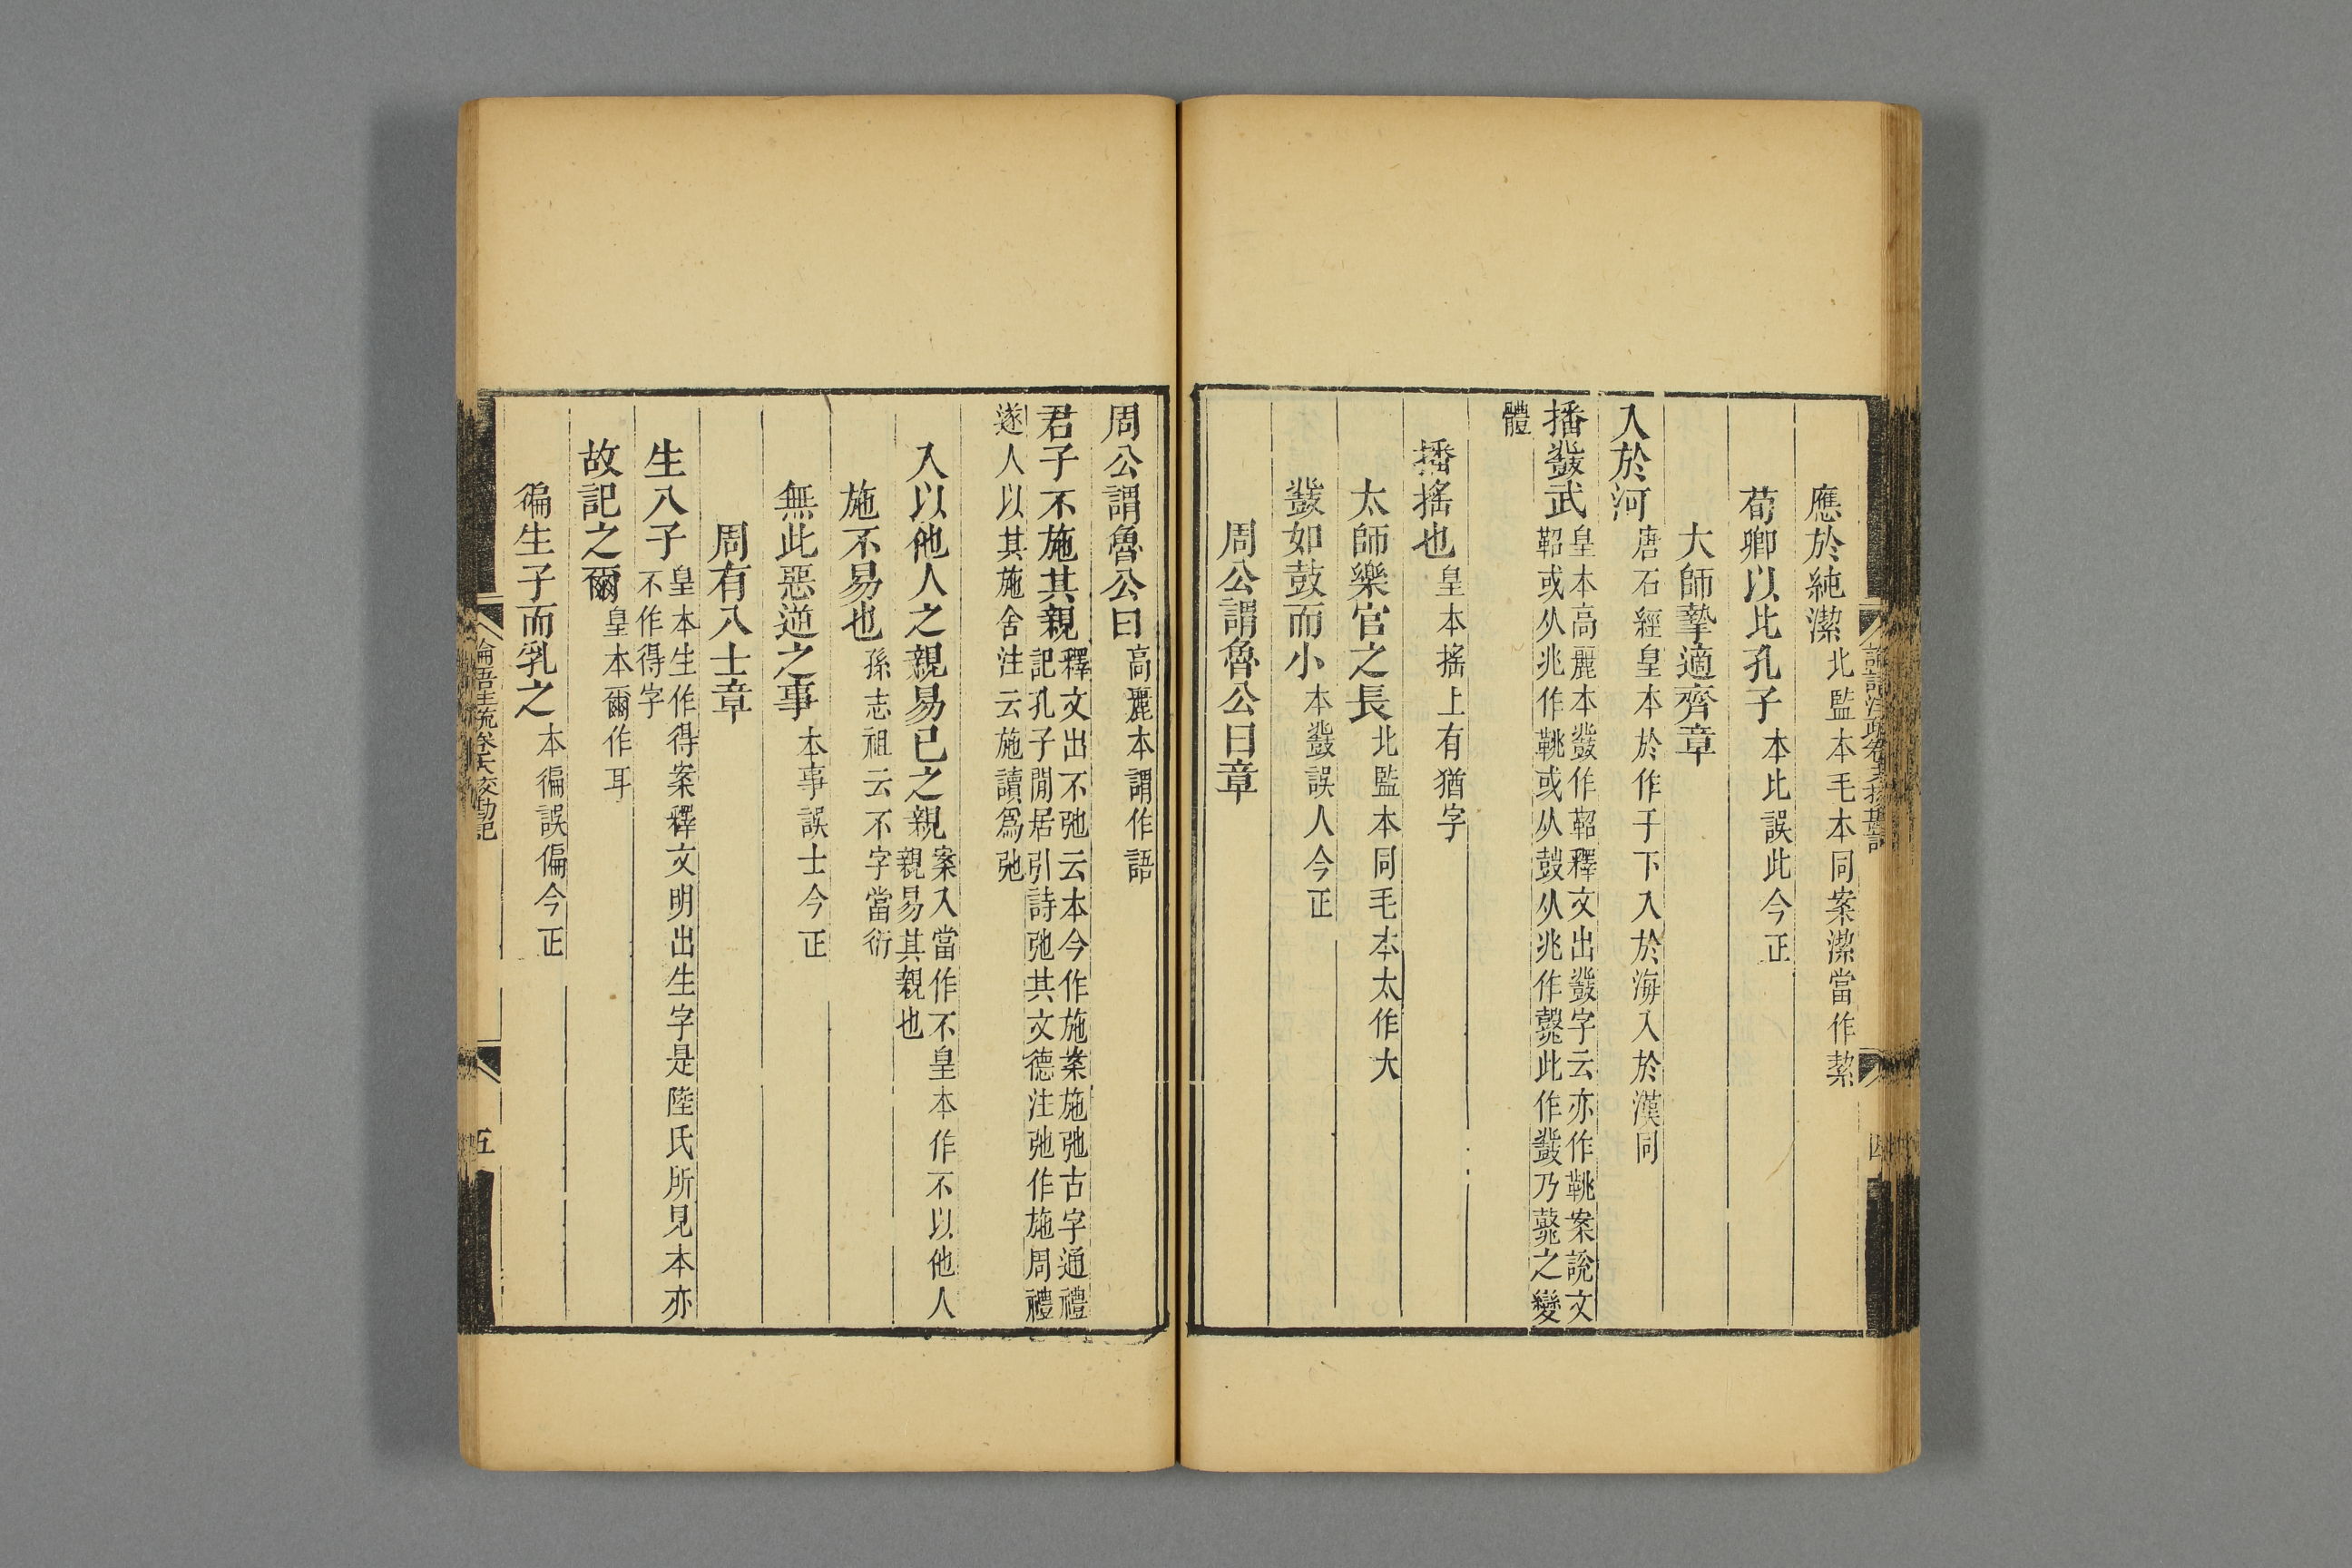 應於純潔 北監本毛本同案潔當作絜
荀卿以比孔子 本比誤此今正
大師摯適齊章
入於河 唐石經皇本於作于下入於海入於漢同
播鼗武 皇本高麗本鼗作鞀釋文出鼗字云亦作鞉案說文
鞀或从兆作鞉或从鼓从兆作鼗此作鼗乃鼗之變
體
播搖也 皇本搖上有猶字
太師樂官之長 北監本同毛本太作大
鼗如鼓而小 本鼗誤人今正
周公謂魯公曰章
論語注疏卷十八校勘記
四
周公謂魯公曰 高麗本謂作語
君子不施其親 釋文出不弛云本今作施案施弛古字通禮
記孔子閒居引詩弛其文德注弛作施周禮
遂人以其施舍注云施讀爲弛
入以他人之親易已之親 案入當作不皇本作不以他人
親易其親也
施不易也 孫志祖云不字當衍
無此惡逆之事 本事誤士今正
周有八士章
生八子 皇本生作得案釋文明出生字是陸氏所見本亦
不作得字
故記之爾 皇本爾作耳
徧生子而乳之 本徧誤偏今正
論語注疏卷十八校勘記
五